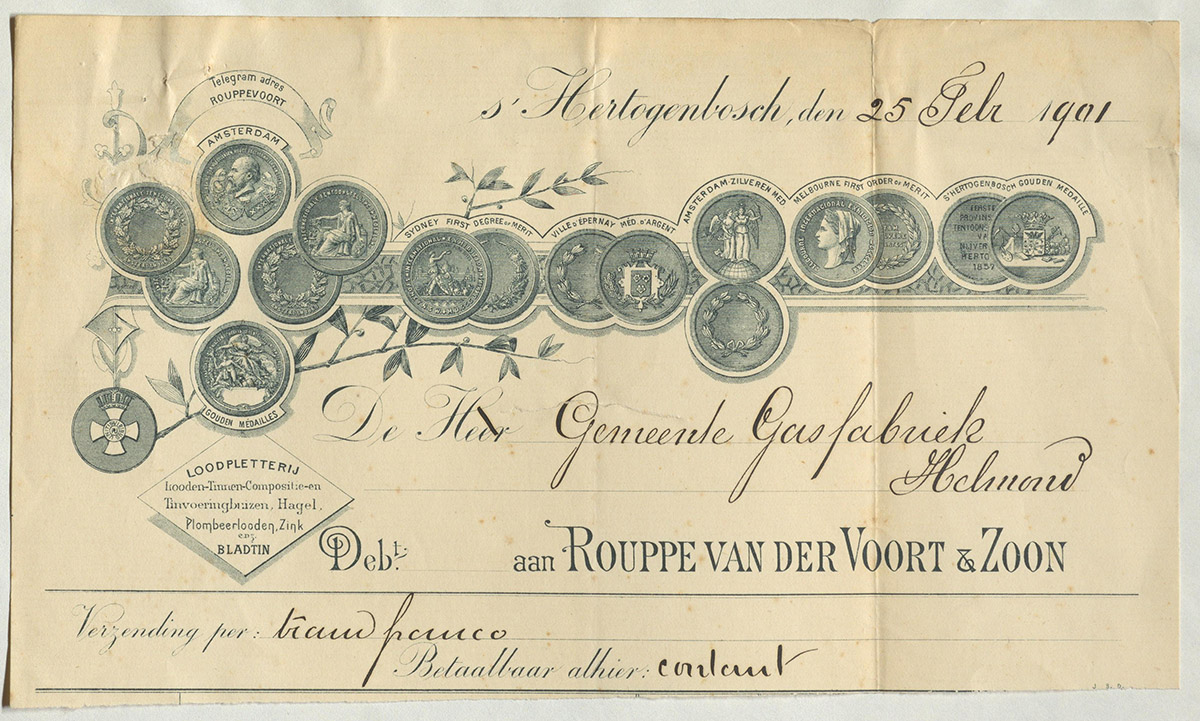 Telegram adres
ROUPPEVOORT
s' Hertogenbosch, den 25 Febr 1901
AMSTERDAM
SYDNEY FIRST DEGREE OF MERIT
VILLE D'ÉPERNAY MÉD. D'ARGENT
AMSTERDAM-ZILVEREN MED
MELBOURNE FIRST ORDER OF MERIT
S'HERTOGENBOSCH GOUDEN MEDAILLE
EERSTE
PROVINS
TENTOON
VAN
NIJVER
HERTO
1857
GOUDEN MÉDAILLES
De Heer Gemeente Gasfabriek
Helmond
LOODPLETTERIJ
Looden-Tinnen-Compositie-en
Tinvoeringbuizen, Hagel,
Plombeerlooden, Zink
enz.
BLADTIN
Debt. aan ROUPPE VAN DER VOORT & ZOON
Verzending per: tram franco
Betaalbaar alhier: contant